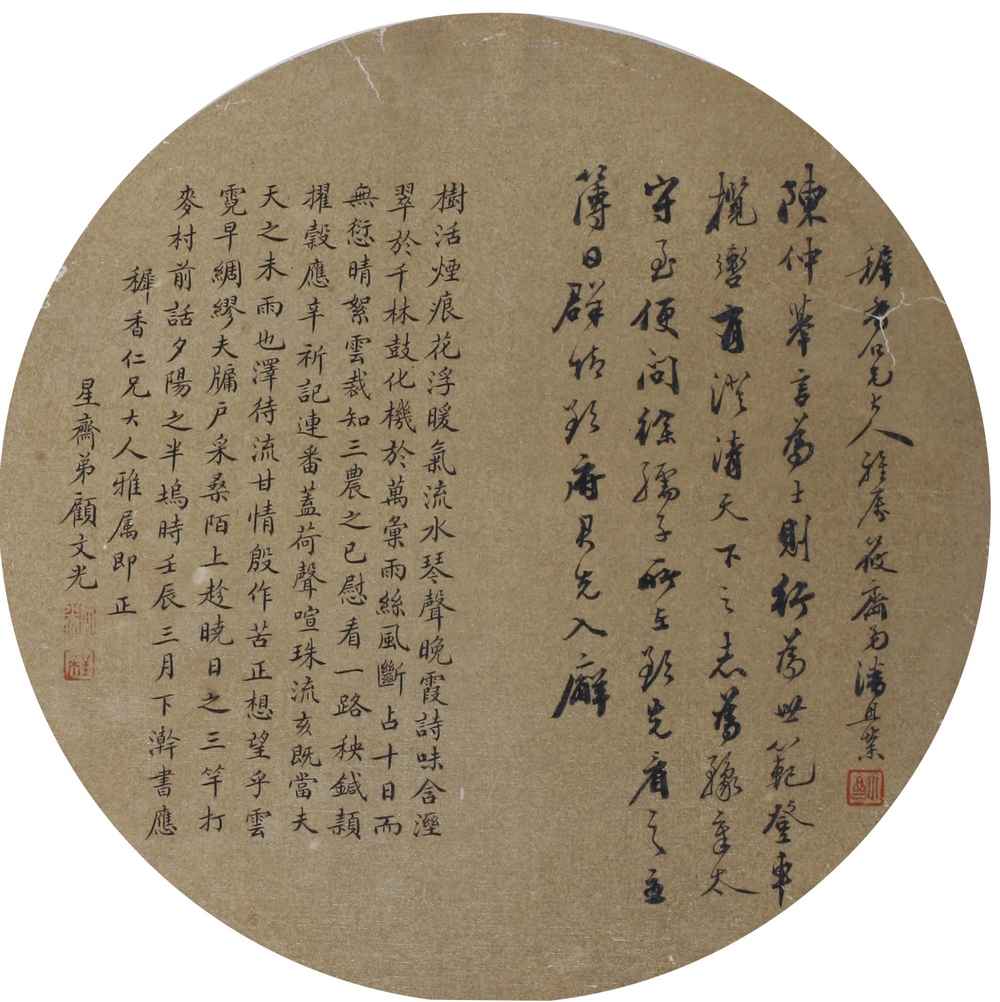 穉香仁兄大人雅屬筱齋弟潘
陳仲舉言為士則行為世範登車
攬轡有澄清天下之志為豫章太
守至便問徐孺子所在欲先看之主
簿曰群情欲府君先入廨
樹活煙痕花浮暖氣流水琴聲晚霞詩味含溼
翠於千林鼓化機於萬彙雨絲風斷占十日而
無愆晴絮雲裁知三農之已慰看一路秧鍼穎
擢穀應辛祈記連番蓋荷聲喧珠流亥既當夫
天之未雨也澤待流甘情殷作苦正想望乎雲
霓早綢繆夫牖戶采桑陌上趁曉日之三竿打
麥村前話夕陽之半塢時壬辰三月下澣書應
穉香仁兄大人雅属即正
星齋弟顧文光